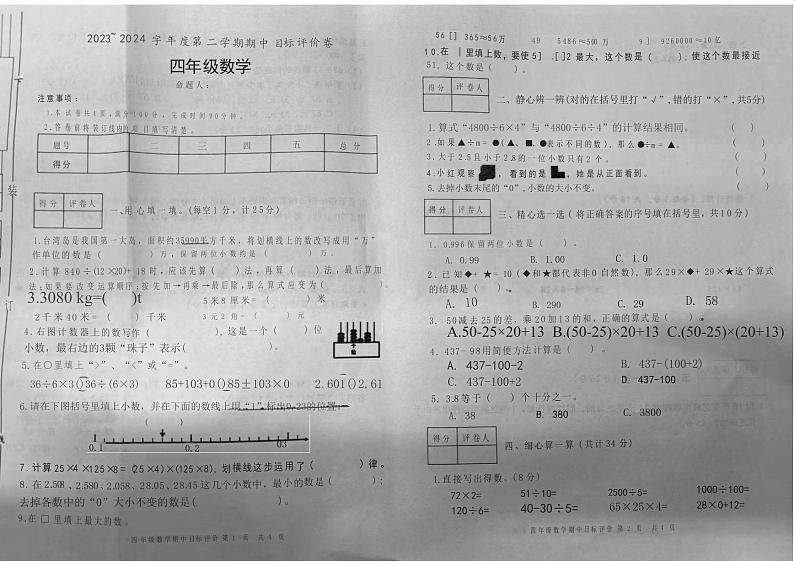 2023~2024 学年度第二学期期中目标评价卷
四年级数学
命题人：
注意事项：
1.本试卷共4页,满分100分，完成时间90分钟。
2.答卷前将装订线内的项目填写清楚。
题号 一 二 三 四 五 总分
得分
装
订
得分 评卷人
一、用心填一填。(每空1分，计25分)
1.台湾岛是我国第一大岛，面积约35990平方千米，将划横线上的数改写成用“万”
作单位的数是（ ）万，保留两位小数约是（ ）万。
2.计算 840÷(12×20)+18时，应该先算（ ）法，再算（ ）法，最后算加
法;如果要改变运算顺序:按先加→再乘→最后除,那么算式应变为（ ）。
3.3080 kg=( )t 5米8厘米=（ ）米
2千米40米=（ ）千米 3元2角=（ ）元
4.右图计数器上的数写作（ ）,这是一个（ ）位
小数，最右边的3颗“珠子”表示( )。
5.在○里填上“>”、“<”或“=”。
36÷6×3○36÷(6×3) 85+103+0○85±103×0 2.601○2.61
6.请在下图括号里填上小数，并在下面的数线上用“↓”标出0.23的位置。
( )
0.1 0.2 03
7.计算25×4×125×8=(25×4)×(125×8)，划横线这步运用了（ ）律。
8.在2.508、2.580、2.058、28.05、28.45这几个小数中，最小的是( );
去掉各数中的“0”大小不变的数是( )。
9.在□里填上最大的数。
四年级数学期中目标评价 第1页 共4页
56[] 365≈56万 49 5486≈500万 9] 9260000≈10亿
10.在 | 里填上数，要使5] .[]2最大，这个数是（ ）；使这个数最接近
51，这个数是（ ）。
得分 评卷人
二、静心辨一辨(对的在括号里打“√”,错的打“×”,共5分)
1.算式“4800÷6×4”与“4800÷6÷4”的计算结果相同。 ( )
2.如果▲÷m=●(▲、■、●表示不同的数)，那么●÷m=▲。 ( )
3.大于2.5且小于2.8的一位小数只有2个。 ( )
4.小红观察 ，看到的是 ，她是从正面看到。 ( )
5.去掉小数末尾的“0”,小数的大小不变。 ( )
得分 评卷人
三、精心选一选(将正确答案的序号填在括号里，共10分)
1. 0.996保留两位小数是（ ）。
A. 0.99 B. 1.00 C. 1.0
2.已知◆+★=10(◆和★都代表非0自然数)，那么29×◆+29×★这个算式
的结果是( )。
A. 10 B. 290 C. 29 D. 58
3. 50减去25的差，乘20加13的和，正确的算式是( )。
A.50-25×20+13 B.(50-25)×20+13 C.(50-25)×(20+13)
4. 437-98用简便方法计算是（ ）。
A. 437-100-2 B. 437-(100+2)
C. 437-100+2 D. 437-100
5. 3.8等于（ ）个十分之一。
A. 38 B. 380 C. 3800
得分 评卷人
四、细心算一算（共计34分）
1.直接写出得数。(8分)
72×2= 51÷10= 2500÷5= 1000÷100=
120÷6= 40-30÷5= 65×25×4= 28×0+12=
四年级数学期中目标评价 第2页 共4页